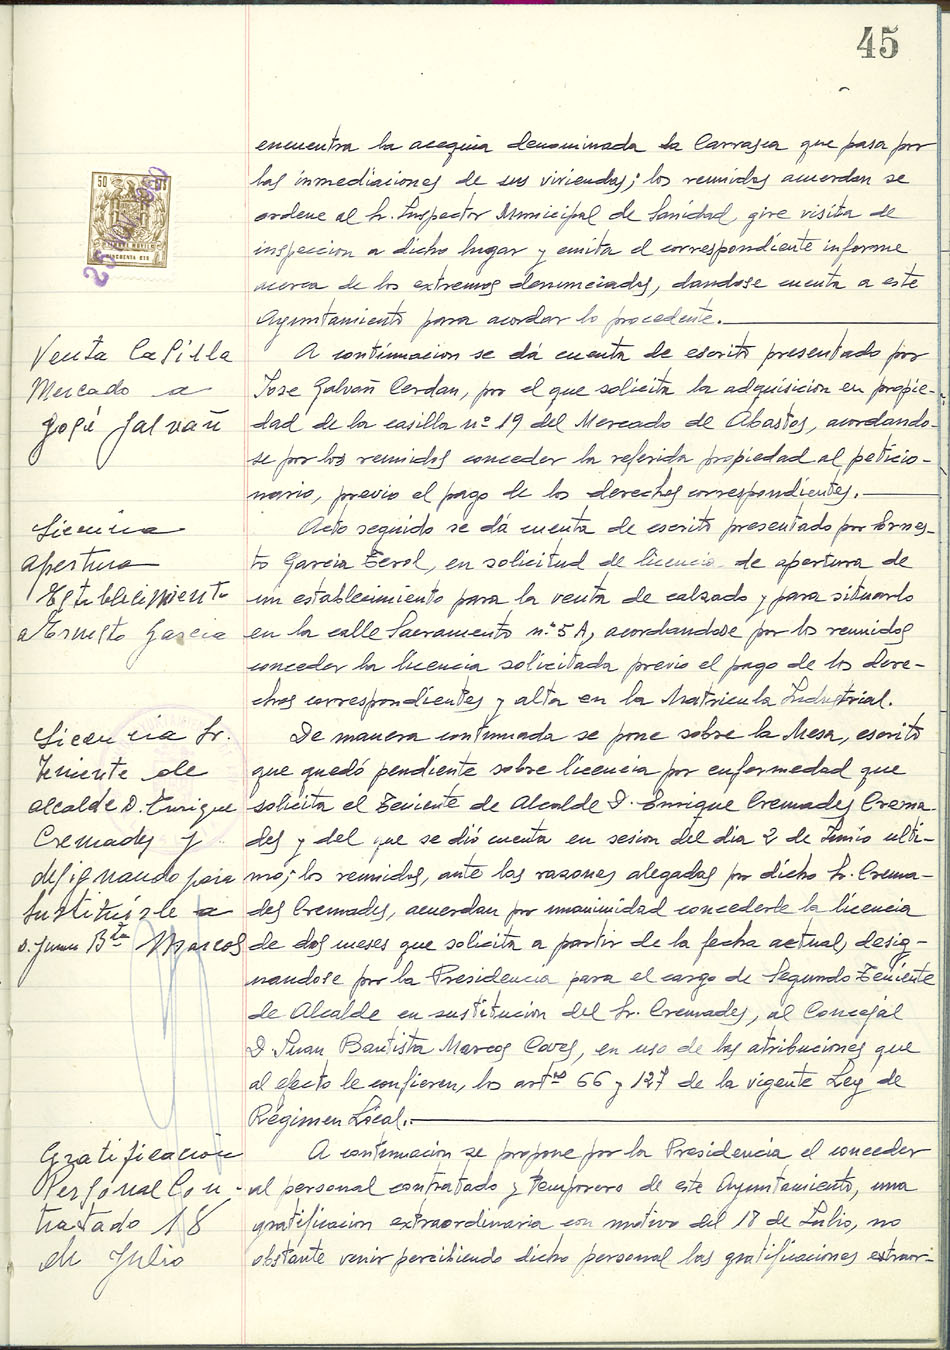 45
encuentra la acequia denominada la Carrasca que pasa por
las inmediaciones de sus viviendas; los reunidos acuerdan se
ordene al Sr. Inspector Municipal de Sanidad, gire visita de
inspeccion a dicho lugar y emita el correspondiente informe
acerca de los extremos denunciados, dandose cuenta a este
Ayuntamiento para acordar lo procedente.
Venta Casilla
Mercado a
José Galvañ
A continuacion se dá cuenta de escrito presentado por
Jose Galvañ Cerdan, por el que solicita la adquisicion en propie-
dad de la casilla nº 19 del Mercado de Abastos, acordando-
se por los reunidos conceder la referida propiedad al peticio-
nario, previo el pago de los derechos correspondientes.
Licencia
apertura
Establecimiento
a Ernesto Garcia
Acto seguido se dá cuenta de escrito presentado por Ernes-
to Garcia Terol, en solicitud de licencia de apertura de
un establecimiento para la venta de calzado y para situarlo
en la calle Sacramento nº 5 A, acordandose por los reunidos
conceder la licencia solicitada previo el pago de los dere-
chos correspondientes y alta en la Matricula Industrial.
Licencia Sr.
Teniente de
alcalde D. Enrique
Cremades y
designando para
sustituirle a
D. Juan Bta Marcos
De manera continuada se pone sobre la Mesa, escrito
que quedó pendiente sobre licencia por enfermedad que
solicita el Teniente de Alcalde D. Enrique Cremades Crema-
des y del que se dió cuenta en sesion del dia 2 de Junio ulti-
mo; los reunidos, ante las razones alegadas por dicho Sr. Crema-
des Cremades, acuerdan por unanimidad concederle la licencia
de dos meses que solicita a partir de la fecha actual, desig-
nandose por la Presidencia para el cargo de Segundo Teniente
de Alcalde en sustitucion del Sr. Cremades, al Concejal
D. Juan Bautista Marcos Coves, en uso de las atribuciones que
al efecto le confieren, los artos 66 y 127 de la vigente Ley de
Régimen Local.
Gratificación
Personal Con-
tratado 18
de Julio
A continuacion se propone por la Presidencia el conceder
al personal contratado y temporero de este Ayuntamiento, una
gratificacion extraordinaria con motivo del 18 de Julio, no
obstante venir percibiendo dicho personal las gratificaciones extraor-